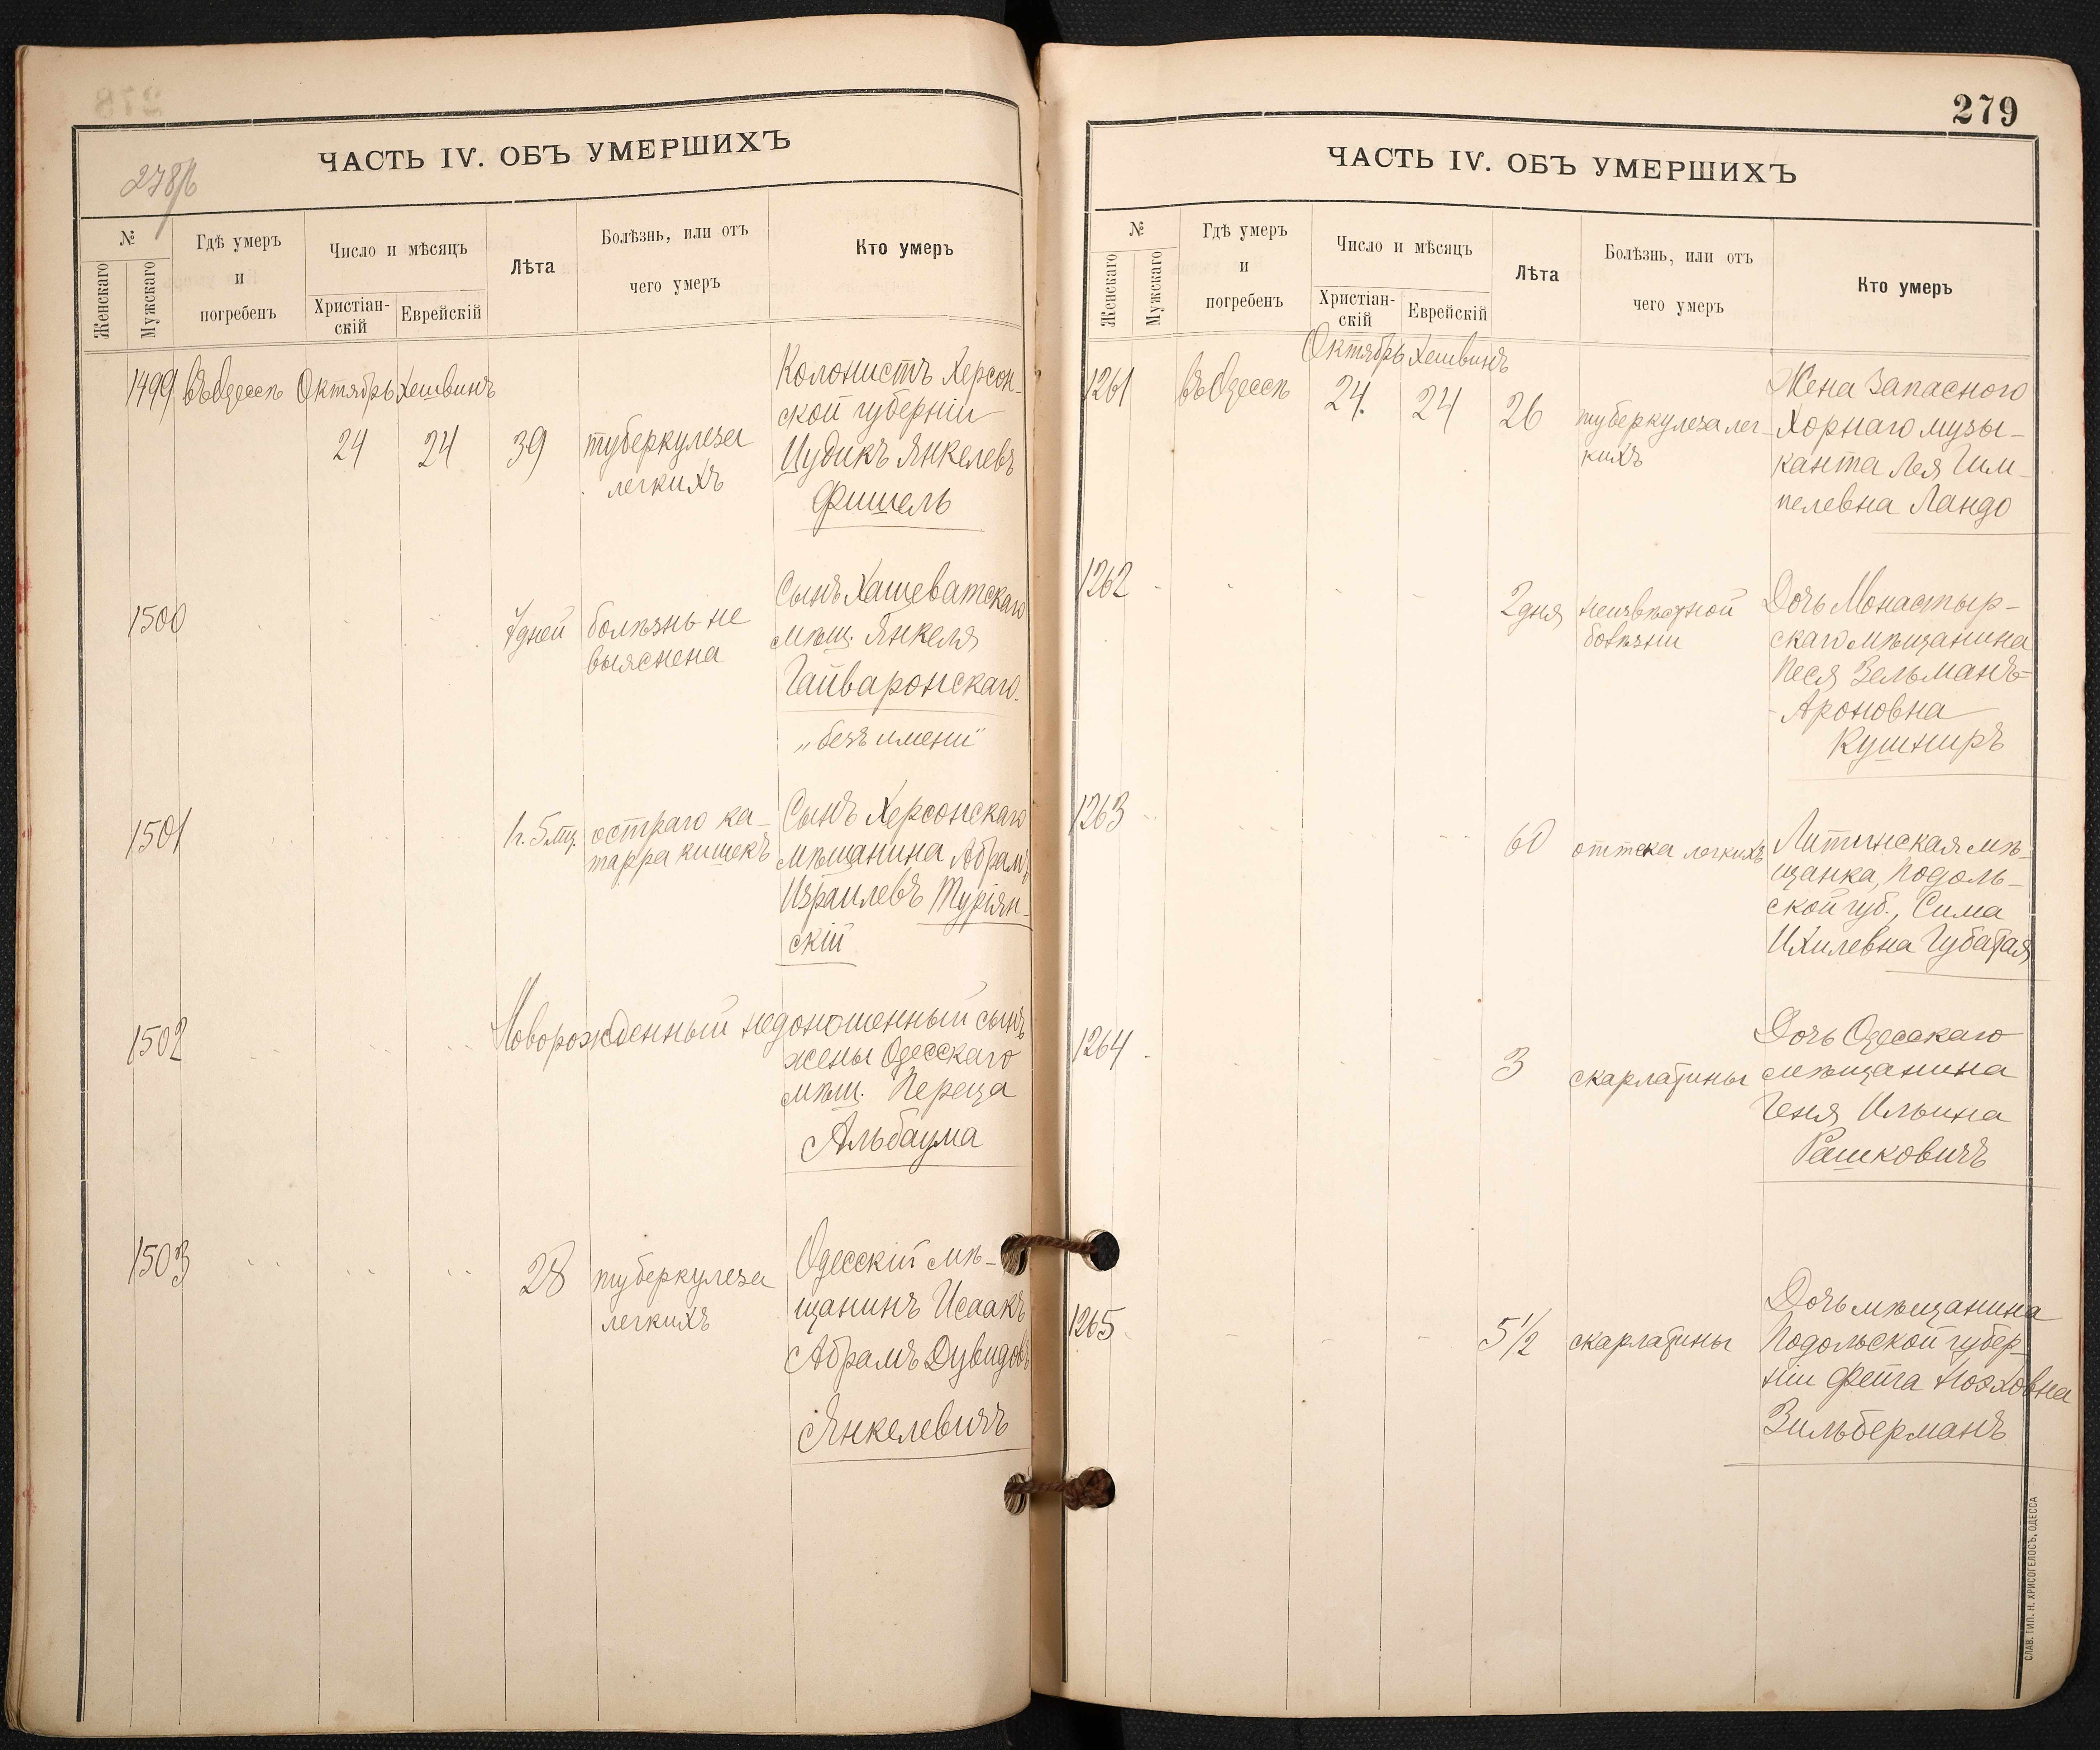 278/б
ЧАСТЬ IV. ОБЪ УМЕРШИХЪ
№
Женскаго
Мужскаго
Гдѣ умеръ
и
погребенъ
Число и мѣсяцъ
Христіан-
скій
Еврейскій
Лѣта
Болѣзнь, или отъ
чего умеръ
Кто умеръ
1499 въ Одессѣ Октябрь Хешвинъ
24 24 39 туберкулеза
легкихъ
Колонистъ Херсон-
ской губерніи
Цудикъ Янкелевъ
Фишель
1500 7 дней болѣзнь не
выяснена
Сынъ Хащеватскаго
мѣщ. Янкеля
Гайваронскаго
„безъ имени"
1501 1 г. 5 мц. остраго ка-
тарра кишекъ
Сынъ Херсонскаго
мѣщанина Абрамъ
Израилевъ Туріян-
скій
1502 Новорожденный недоношенный сынъ
жены Одесскаго
мѣщ. Переца
Альбаума
1503 28 туберкулеза
легкихъ
Одесскій мѣ-
щанинъ Исаакъ
Абрамъ Дувидовъ
Янкелевичъ
279
ЧАСТЬ IV. ОБЪ УМЕРШИХЪ
№
Женскаго
Мужскаго
Гдѣ умеръ
и
погребенъ
Число и мѣсяцъ
Христіан-
скій
Еврейскій
Лѣта
Болѣзнь, или отъ
чего умеръ
Кто умеръ
Октябрь Хешвинъ
1261 въ Одессѣ 24. 24 26 туберкулеза лег-
кихъ
Жена запасного
Хорнаго музы-
канта Лея Гим-
пелевна Ландо
1262 2 дня неизвѣстной
болѣзни
Дочь Монастыр-
скаго мѣщанина
Песя Зельманъ-
-Ароновна
Кушниръ
1263 60 оттека легкихъ
Литинская мѣ-
щанка, Подоль-
ской губ., Сима
Ихилевна Губатая
1264 3 скарлатины
Дочь Одесскаго
мѣщанина
Геня Ильина
Рашковичъ
1265 5 1/2 скарлатины
Дочь мѣщанина
Подольской губер-
ніи Фейга Ноэховна
Зильберманъ
СЛАВ. ТИП. Н. ХРИСОГЕЛОСЪ, ОДЕССА